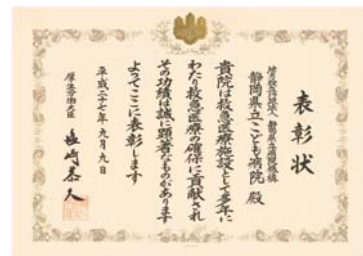 表彰状
地方独立行政法人 静岡県立病院機構
静岡県立こども病院 殿
貴院は救急医療施設として多年に
わたり救急医療の確保に貢献され
その功績は誠に顕著なものがあります
よってここに表彰します
平成二十七年九月九日
厚生労働大臣
塩崎恭久